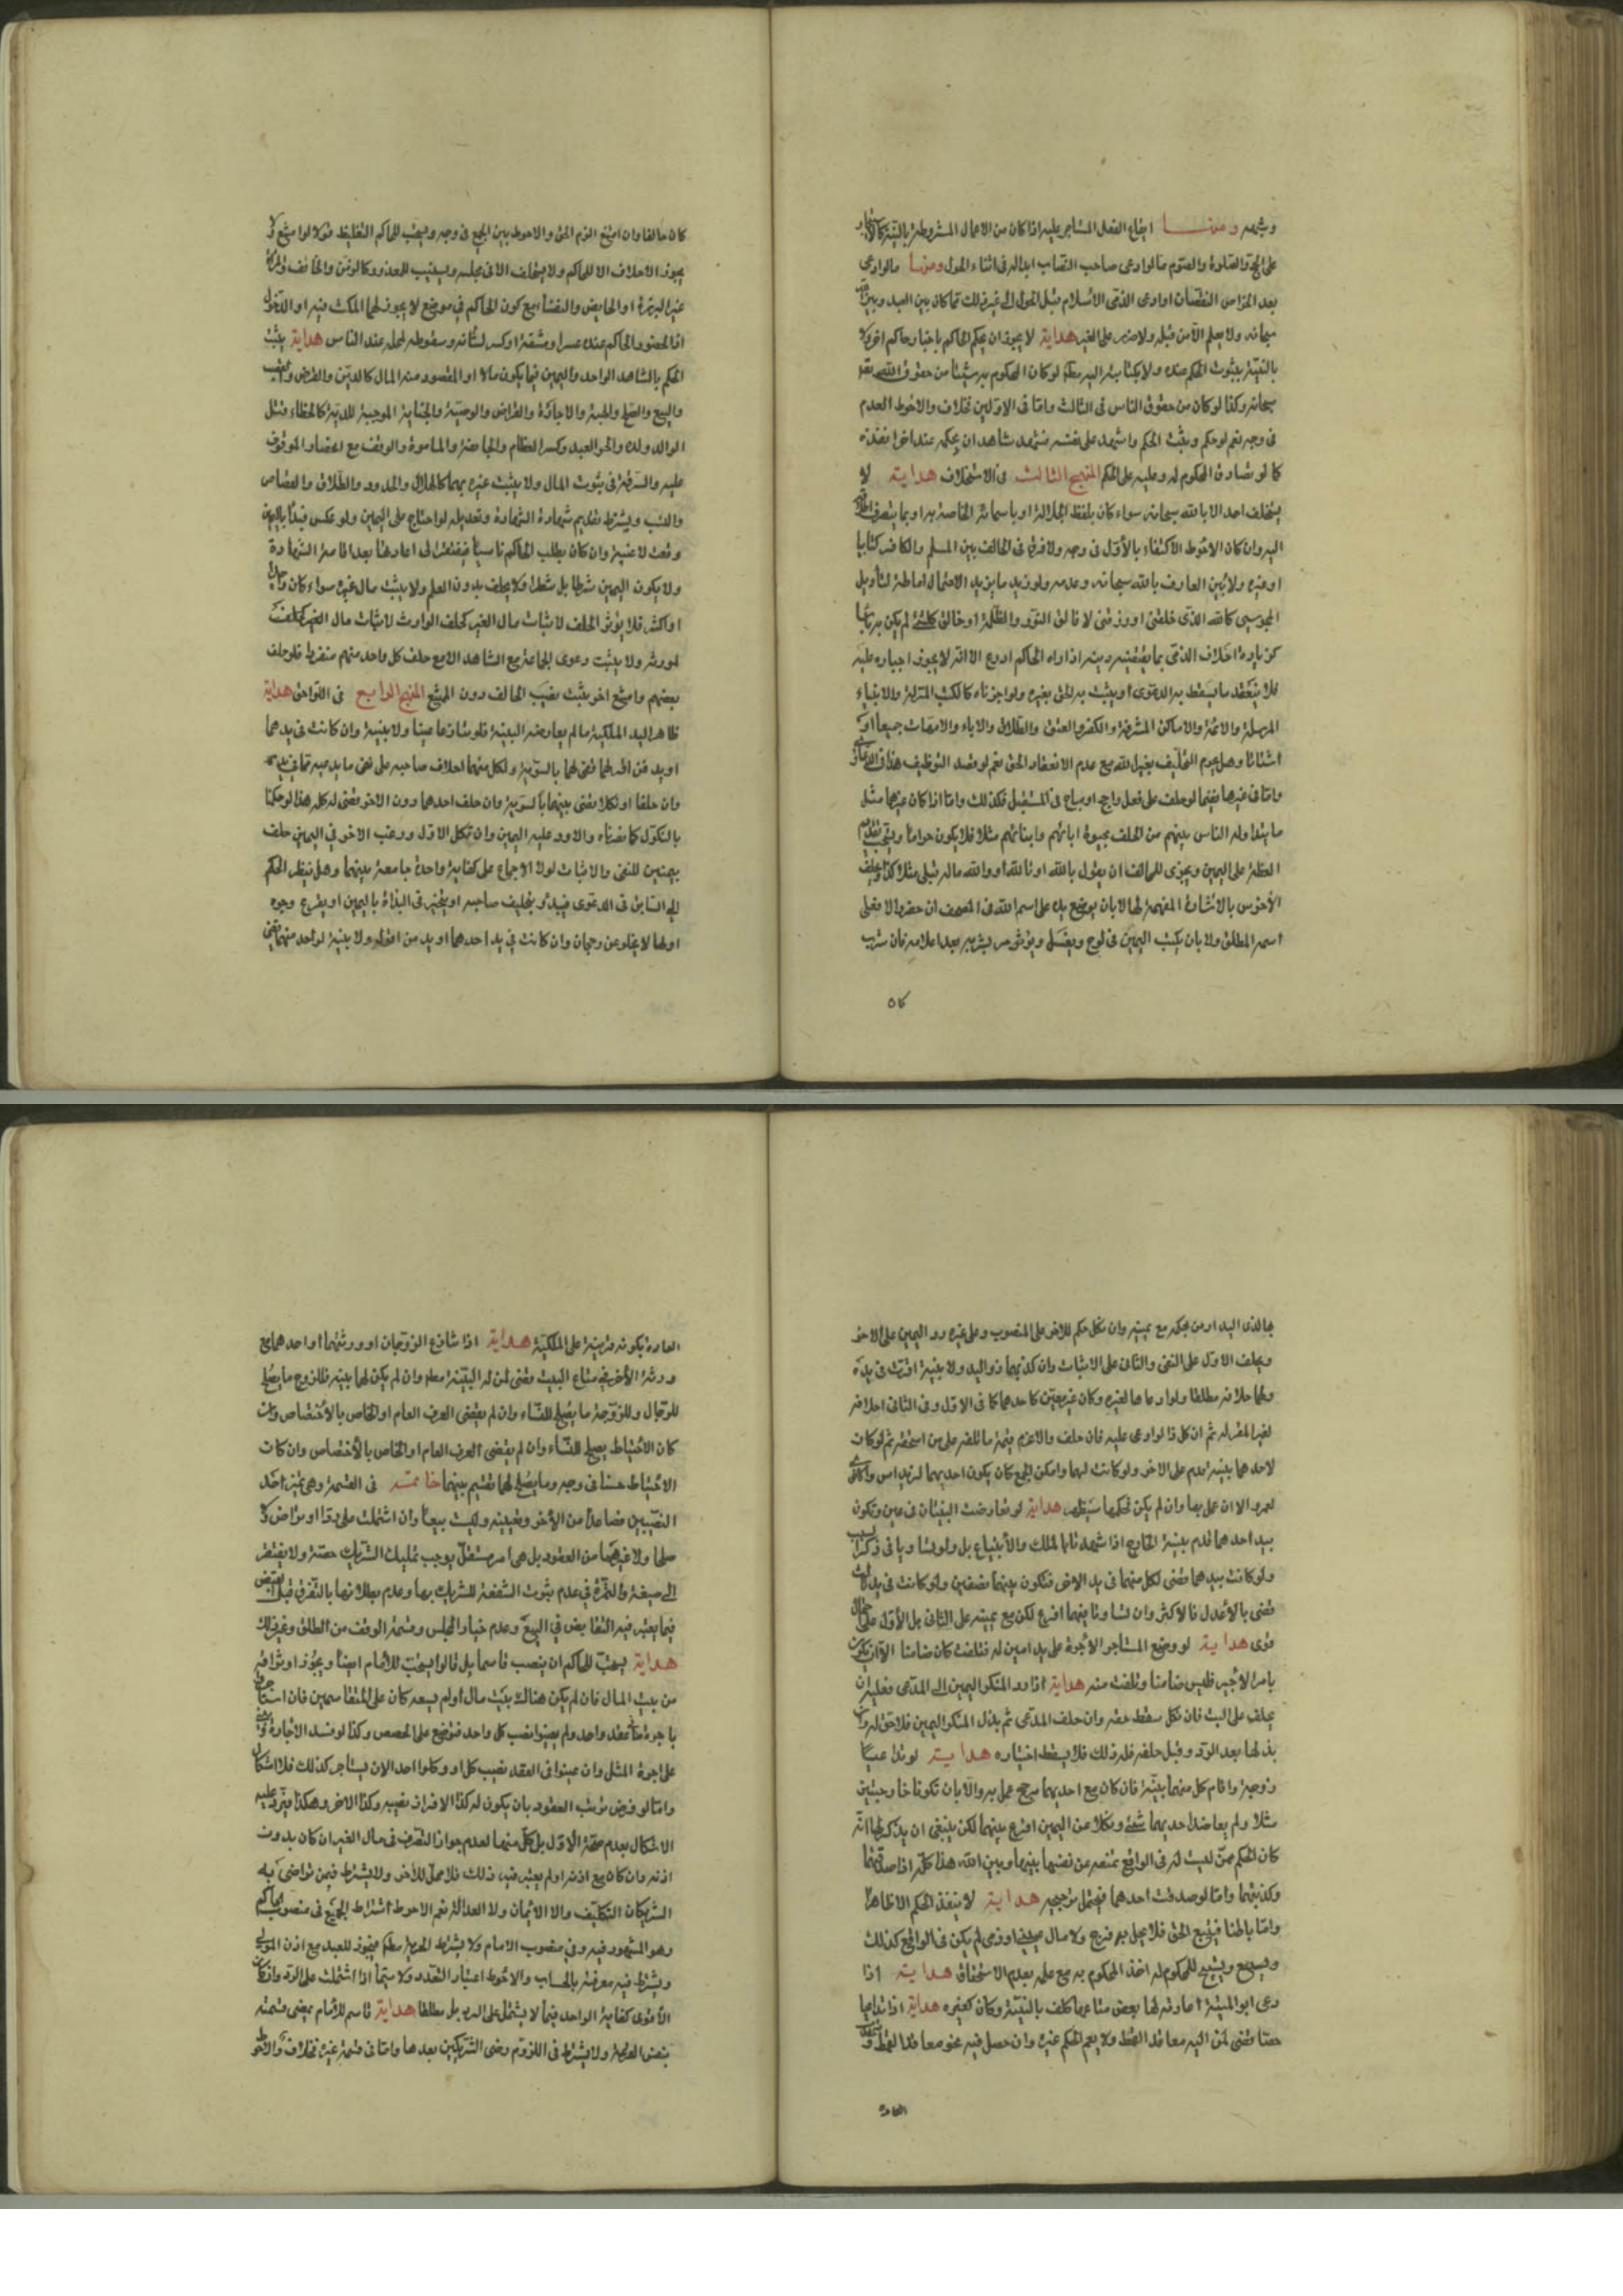 وشبهه ومنها ايقاع الفعل المستاجر عليه اذا كان من الاعمال المشروطة بالنية كالاستيجار
على الحج والصلوة والصوم ما لو ادعى صاحب النصاب ابداله في اثناء الحول ومنها ما لو ادعى
بعد الخراص النقصان او ادعى الذمى الاسلام قبل الحول الى غير ذلك مما كان بين العبد وبين الله
سبحانه ولا يعلم الا من قبله ولا ضرر على الغير هداية لا يجوز ان يحكم الحاكم باخبار حاكم اخر ولا
بالبينة بثبوت الحكم عنده ولا بكتابته اليه مطلقا لو كان المحكوم به شيئا من حقوق الله
سبحانه وكذا لو كان من حقوق الناس في الثالث واما في الاولين فخلاف والاحوط العدم
في وجه نعم لو حكم وبثبت الحكم واشهد على نفسه فشهد شاهدان بحكمه عند اخر انفذه
كما لو تصادق المحكوم له وعليه على الحكم المنهج الثالث في الاستحلاف هداية لا
يستحلف احد الا بالله سبحانه سواء كان بلفظ الجلالة او باسمائه الخاصة به او بما ينصرف اطلاقه
اليه وان كان الاحوط الاكتفاء بالاول في وجه ولا فرق في الحالف بين المسلم والكافر كتابيا
او غيره ولا بين العارف بالله سبحانه وعدمه ولو زيد ما يزيد الاحتمال اماطة لتأويل
المجوسي كالله الذي خلقني او رزقني لا خالق النور والظلمة او خالق كلشئ لم يكن به باس
كزيادة احلاف الذمى بما يقتضيه دينه اذا راه الحاكم اردع الا انه لا يجوز اجباره عليه
فلا ينعقد ما يسقط به الدعوى او يثبت به الحق بغيره ولو اجزناه كالكتب المنزلة والانبياء
المرسلة والائمة والاماكن المشرفة والكفر والعتق والطلاق والاباء والامهات جميعا او
استثناء وهل يحرم التحليف بغير الله مع عدم الانعقاد الحق نعم لو قصد التوظيف هذا في الدعاوى
واما في غيرها فيما لو حلف على فعل واجب او مباح في المستقبل فكذلك واما اذا كان غيرها مثل
ما يتداوله الناس بينهم من الحلف بحيوة ابائهم وابنائهم مثلا فلا يكون حراما ويستحب تقديم
العظة على اليمين ويجزى للحالف ان يقول بالله او تالله او والله ماله قبلي مثلا كذا ويحلف
الاخرس بالاشارة المفهمة لها لا بان يوضع يده على اسم الله في المصحف ان حضر والا فعلى
اسمه المطلق ولا بان يكتب اليمين في لوح ويغسل ويؤمر بشربه بعد اعلامه فان شرب
كان
كان حالفا وان امتنع الزم الحق والاحوط بين الجمع في وجه ويستحب للحاكم التغليظ قولا لو امتنع لا
يجوز الاحلاف الا للحاكم ولا يستحلف الا في مجلسه ويستنيب للمعذور كالزمن والخائف والمراة
غير البرزة او الحايض والنفساء مع كون الحاكم في موضع لا يجوز لهما المكث فيه او الدخول
اذا الحضور والحاكم عنده عسرا ومشقة او كسر لشانه وسقوطه لمحله عند الناس هداية يثبت
الحكم بالشاهد الواحد واليمين فيما يكون مالا او المقصود منه المال كالدين والقرض والغصب
والبيع والصلح والهبة والاجارة والقراض والوصية والجناية الموجبة للدية كالخطاء وقتل
الوالد ولده والحر العبد وكسر العظام والجائفة والمامومة والوقف مع انحصار الموقوف
عليه والسرقة في ثبوت المال ولا يثبت غيره بهما كالهلال والحدود والطلاق والقصاص
والنسب ويشترط تقديم شهادة الشهادة وتعديله لو احتاج على اليمين ولو عكس فبدأ باليمين
وقعت لاغية وان كان بطلب الحاكم ناسيا فيفتقر الى اعادتها بعد اقامة الشهادة
ولا يكون اليمين شرطا بل شطرا فلا يحلف بدون العلم ولا يثبت مال غيره سواء كان واحدا
او اكثر فلا يؤثر الحلف لاثبات مال الغير كحلف الوارث لاثبات مال الغير
لمورثه ولا يثبت دعوى الجماعة مع الشاهد الا مع حلف كل واحد منهم منفردا فلو حلف
بعضهم وامتنع اخر يثبت نصيب الحالف دون الممتنع المنهج الرابع في اللواحق هداية
ظاهر اليد الملكية ما لم يعارضه البينة فلو تنازعا عينا ولا بينة وان كانت في يدهما
او يد من اقر لهما قضى لهما بالسوية ولكل منهما احلاف صاحبه على نفى ما يدعيه مما في يده
وان حلفا او نكلا يقضى بينهما بالسوية وان حلف احدهما دون الاخر يقضى له كله هذا لو حكمنا
بالنكول كما مضناه والا ورد عليه اليمين وان نكل الاول ورغب الاخر في اليمين حلف
يمينين للنفى والاثبات لولا الاجماع على كفاية واحدة جامعة بينهما وهل ينظر الحكم
الى السابق في الدعوى فيبدؤ بتحليف صاحبه او يتخير في البدأة باليمين او يقرع وجوه
اولها لا يخلو عن رجحان وان كانت في يد احدهما او يد من اقر له ولا بينة لواحد منهما يقضى
بها لذى اليد او من يحكمه مع يمينه وان نكل حكم للاخر على المنصوب وعلى غيره رد اليمين على الاخر
ويحلف الاول على النفى والثاني على الاثبات وان كذبهما ذو اليد ولا بينة اقرت في يده
ولهما حلافه مطلقا ولو ادعاها لغيره وكان غير معين كاحدهما كما في الاول وفي الثاني احلافه
لغير المقر له ثم ان كل ذا لو ادعى عليه فان حلف والا غرم قيمة ما تلفه على من استحقه ثم لو كانت
لاحدهما بينة قدم على الاخر ولو كانت لهما وامكن الجمع كان يكون احديهما لزيد امس والاخرى
لعمرو الان عمل بها وان لم يكن فحكمها سيظهر هداية لو تعارضت البينتان في عين وتكون
بيد احدهما قدم بينة الخارج اذا شهدتا بالملك والابتياع بل ولو تساويا في ذكر السبب
ولو كانت بيدهما يقضى لكل منهما في يد الاخر فتكون بينهما نصفين ولو كانت في يد ثالث
قضى بالاعدل فالاكثر وان تساويا بينهما اقرع لكن مع يمينه على الثاني بل الاول على احتمال
قوى هداية لو وضع المستاجر الاجرة على يد امين له فتلفت كان ضامنا الا ان يكون
بامر الاجير فليس ضامنا وتلفت منه هداية اذا رد المنكر اليمين الى المدعى فعليه ان
يحلف على البت فان نكل سقط حقه وان حلف المدعى ثم بذل المنكر اليمين فلا حق له وان
بذلها بعد الرد وقبل حلفه فله ذلك فلا يسقط اختياره هداية لو تداعيا
زوجية واقام كل منهما بينة فان كان مع احديهما مرجح عمل به والا بان تكونا خارجيتين
مثلا ولم يعاضد احديهما شئ ونكلا عن اليمين اقرع بينهما لكن ينبغى ان يذكر لها انه
كان الحكم ممن ليست له في الواقع تمتنعه عن نفسها بينها وبين الله هذا كله اذا صدقتهما
وكذبتهما واما لو صدقت احدهما فيحتمل ترجيحه هداية لا ينفذ الحكم الا ظاهرا
واما باطنا فيتبع الحق فلا يحل به فرج ولا مال لم يكن في الواقع كذلك
ويستبيح للمحكوم له اخذ المحكوم به مع علمه بعدم الاستحقاق هداية اذا
دعى ابو الميتة اعارته لها بعض متاعها كلف بالبينة وكان كغيره هداية اذا تداعيا
خصا قضى لمن اليه معاقد القمط ولا يعم الحكم غيره وان حصل فيه نحو معاقد القمط
العادة
العادة بكونه قرينة على الملكية هداية اذا تنازع الزوجان او ورثتهما او احدهما مع
ورثة الاخر في متاع البيت يقضى لمن له البينة مطلقا وان لم يكن لها بينة فللزوج ما يصلح
للرجال وللزوجة ما يصلح للنساء وان لم يقتضى العرف العام او الخاص بالاختصاص وان
كان الاحتياط يصلح للنساء وان لم يقتضى العرف العام او الخاص بالاختصاص وان كان
الاحتياط حسنا في وجه وما يصلح لهما تقسيم بينهما خاتمة في القسمة وهي تميز احد
النصيبين فصاعدا من الاخر وتعيينه وليست بيعا وان اشتملت على رد او تراض ولا
صلحا ولا غيرهما من العقود بل هي امر مستقل يوجب تمليك الشريك حصته ولا يفتقر
الى صيغة والثمرة في عدم ثبوت الشفعة للشريك بها وعدم بطلانها بالتفرق قبل القبض
فيما يعتبر فيه التقابض في البيع وعدم خيار المجلس وقسمة الوقف من الطلق وغير ذلك
هداية يستحب للحاكم ان ينصب قاسما بل قالوا يستحب للامام ايضا ويجوز ارتزاقه
من بيت المال فان لم يكن هنالك بيت مال او لم يسعه كان على المتقاسمين فان استاجراه
باجرة في عقد واحد ولم يعينوا نصيب كل واحد فتوضع على الحصص وكذا لو فسد الاجارة
على اجرة المثل وان عينوا في العقد نصيب كل او وكلوا احدا لان يستاجر كذلك فلا اشكال
واما لو فرض ترتب العقود بان يكون له كذا لافراز نصيبه وكذا الاخر وهكذا فيرد عليه
الاشكال بعدم صحة الاول بل كل منهما لعدم جواز التصرف في مال الغير ان كان بدون
اذنه وان كان مع اذنه او لم يعتبر فيه ذلك فلا محل للاخر ولا يشترط فيمن تراضى به
الشريكان التكليف ولا الايمان ولا العدالة نعم الاحوط اشتراط الجميع في منصوب الحاكم
وهو المشهور فيه وفي منصوب الامام ولا يشترط الحرية مطلقا فيجوز للعبد مع اذن المولى
ويشترط فيه معرفته بالحساب والاحوط اعتبار التعدد ولا سيما اذا اشتملت على الرد وان كان
الاقوى كفاية الواحد فيما لا يشتمل على الرد بل مطلقا هداية قاسم الامام يمضى قسمته
بنفس القرعة ولا يشترط في اللزوم رضى الشريكين بعدها واما في قسمة غيره فخلاف والاحوط